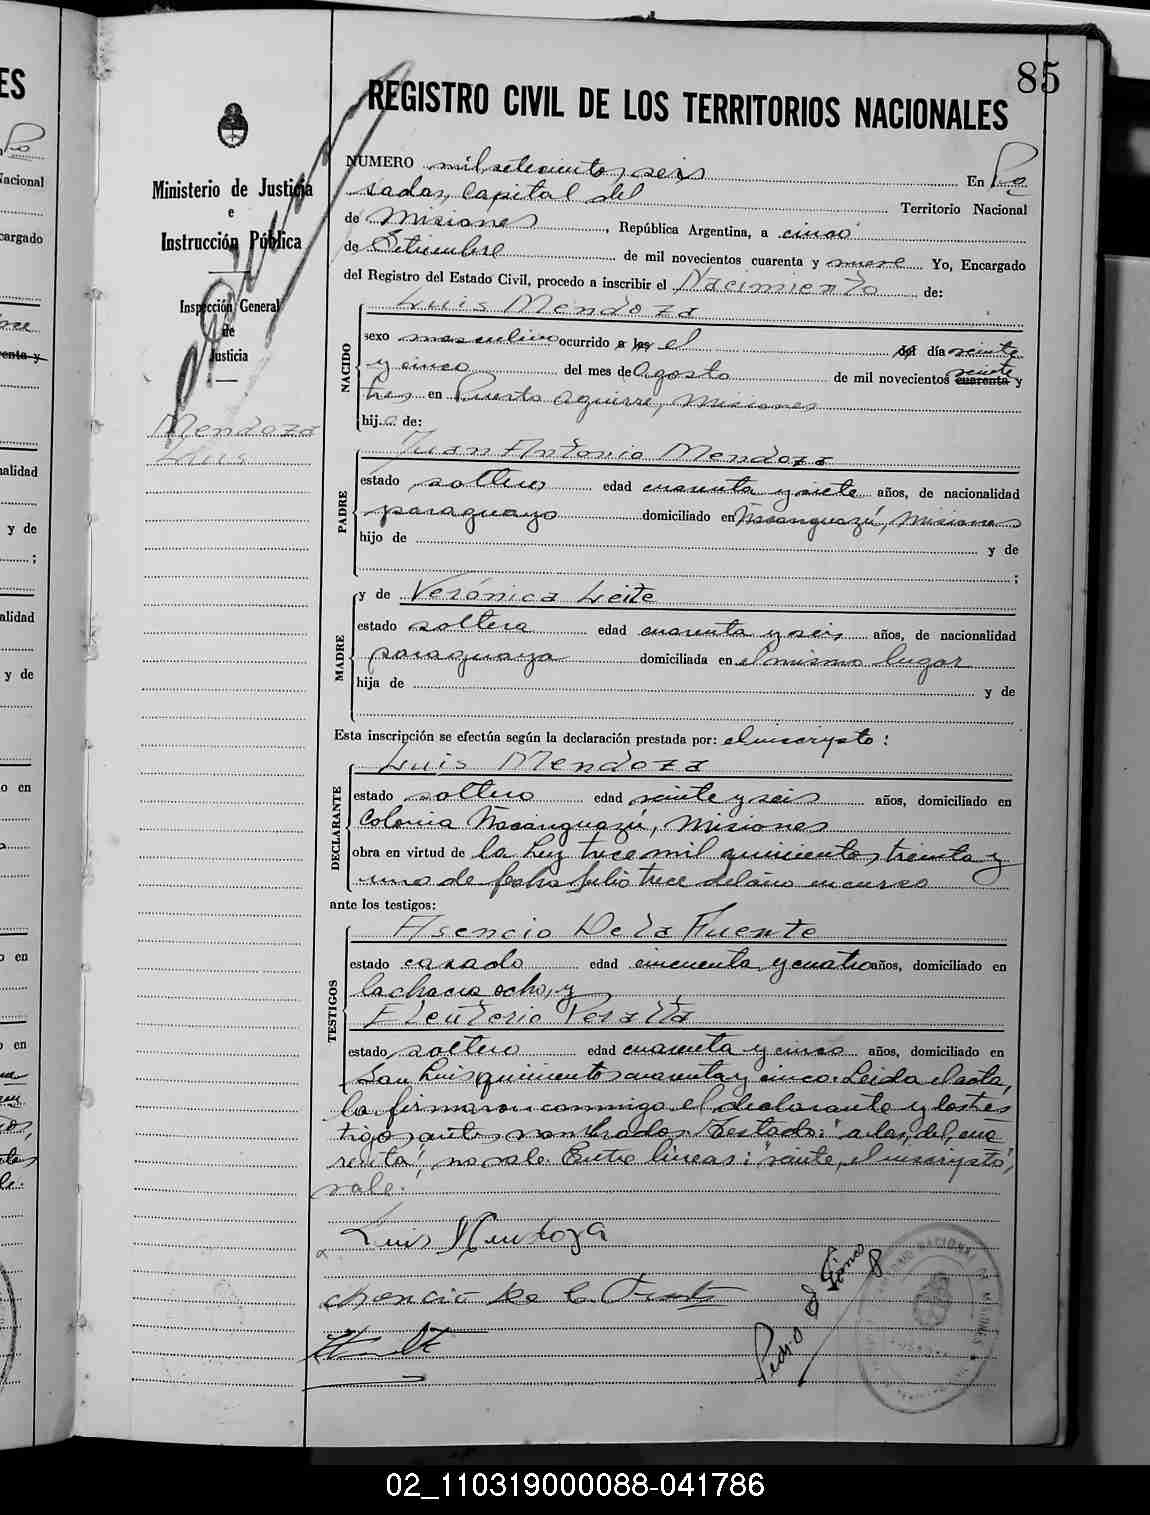 85
REGISTRO CIVIL DE LOS TERRITORIOS NACIONALES
Ministerio de Justicia
e
Instrucción Pública
Inspección General
de
Justicia
Mendoza
Luis
NUMERO mil setecientos seis En Po
sadas, Capital del Territorio Nacional
de Misiones, República Argentina, a cinco
de Setiembre de mil novecientos cuarenta y nueve Yo, Encargado
del Registro del Estado Civil, procedo a inscribir el Nacimiento de:
Luis Mendoza
NACIDO
sexo masculino ocurrido a las el del día veinte
y cinco del mes de Agosto de mil novecientos cuarenta veinte y
tres en Puerto Aguirre, Misiones
hijo de:
Juan Antonio Mendoza
PADRE
estado soltero edad cuarenta y siete años, de nacionalidad
paraguayo domiciliado en Ñacanguazú, Misiones
hijo de y de
;
y de Verónica Leite
MADRE
estado soltera edad cuarenta y seis años, de nacionalidad
paraguaya domiciliada en el mismo lugar
hija de y de
Esta inscripción se efectúa según la declaración prestada por: el inscripto:
Luis Mendoza
DECLARANTE
estado soltero edad veinte y seis años, domiciliado en
Colonia Ñacanguazú, Misiones
obra en virtud de la Ley trece mil quinientos treinta y
uno de fecha Julio trece del año en curso
ante los testigos:
Asencio De la Fuente
TESTIGOS
estado casado edad cincuenta y cuatro años, domiciliado en
la chacra ocho, y
Eleuterio Peralta
estado soltero edad cuarenta y cinco años, domiciliado en
San Luis quinientos cuarenta y cinco. Leida el acta,
la firmaron conmigo el declarante y los tes
tigos antes nombrados. Testado: "a las, del, cua
renta", no vale. Entre lineas: "veinte, el inscripto",
vale.
Luis Mendoza
Asencio De la Fuente
02_110319000088-041786